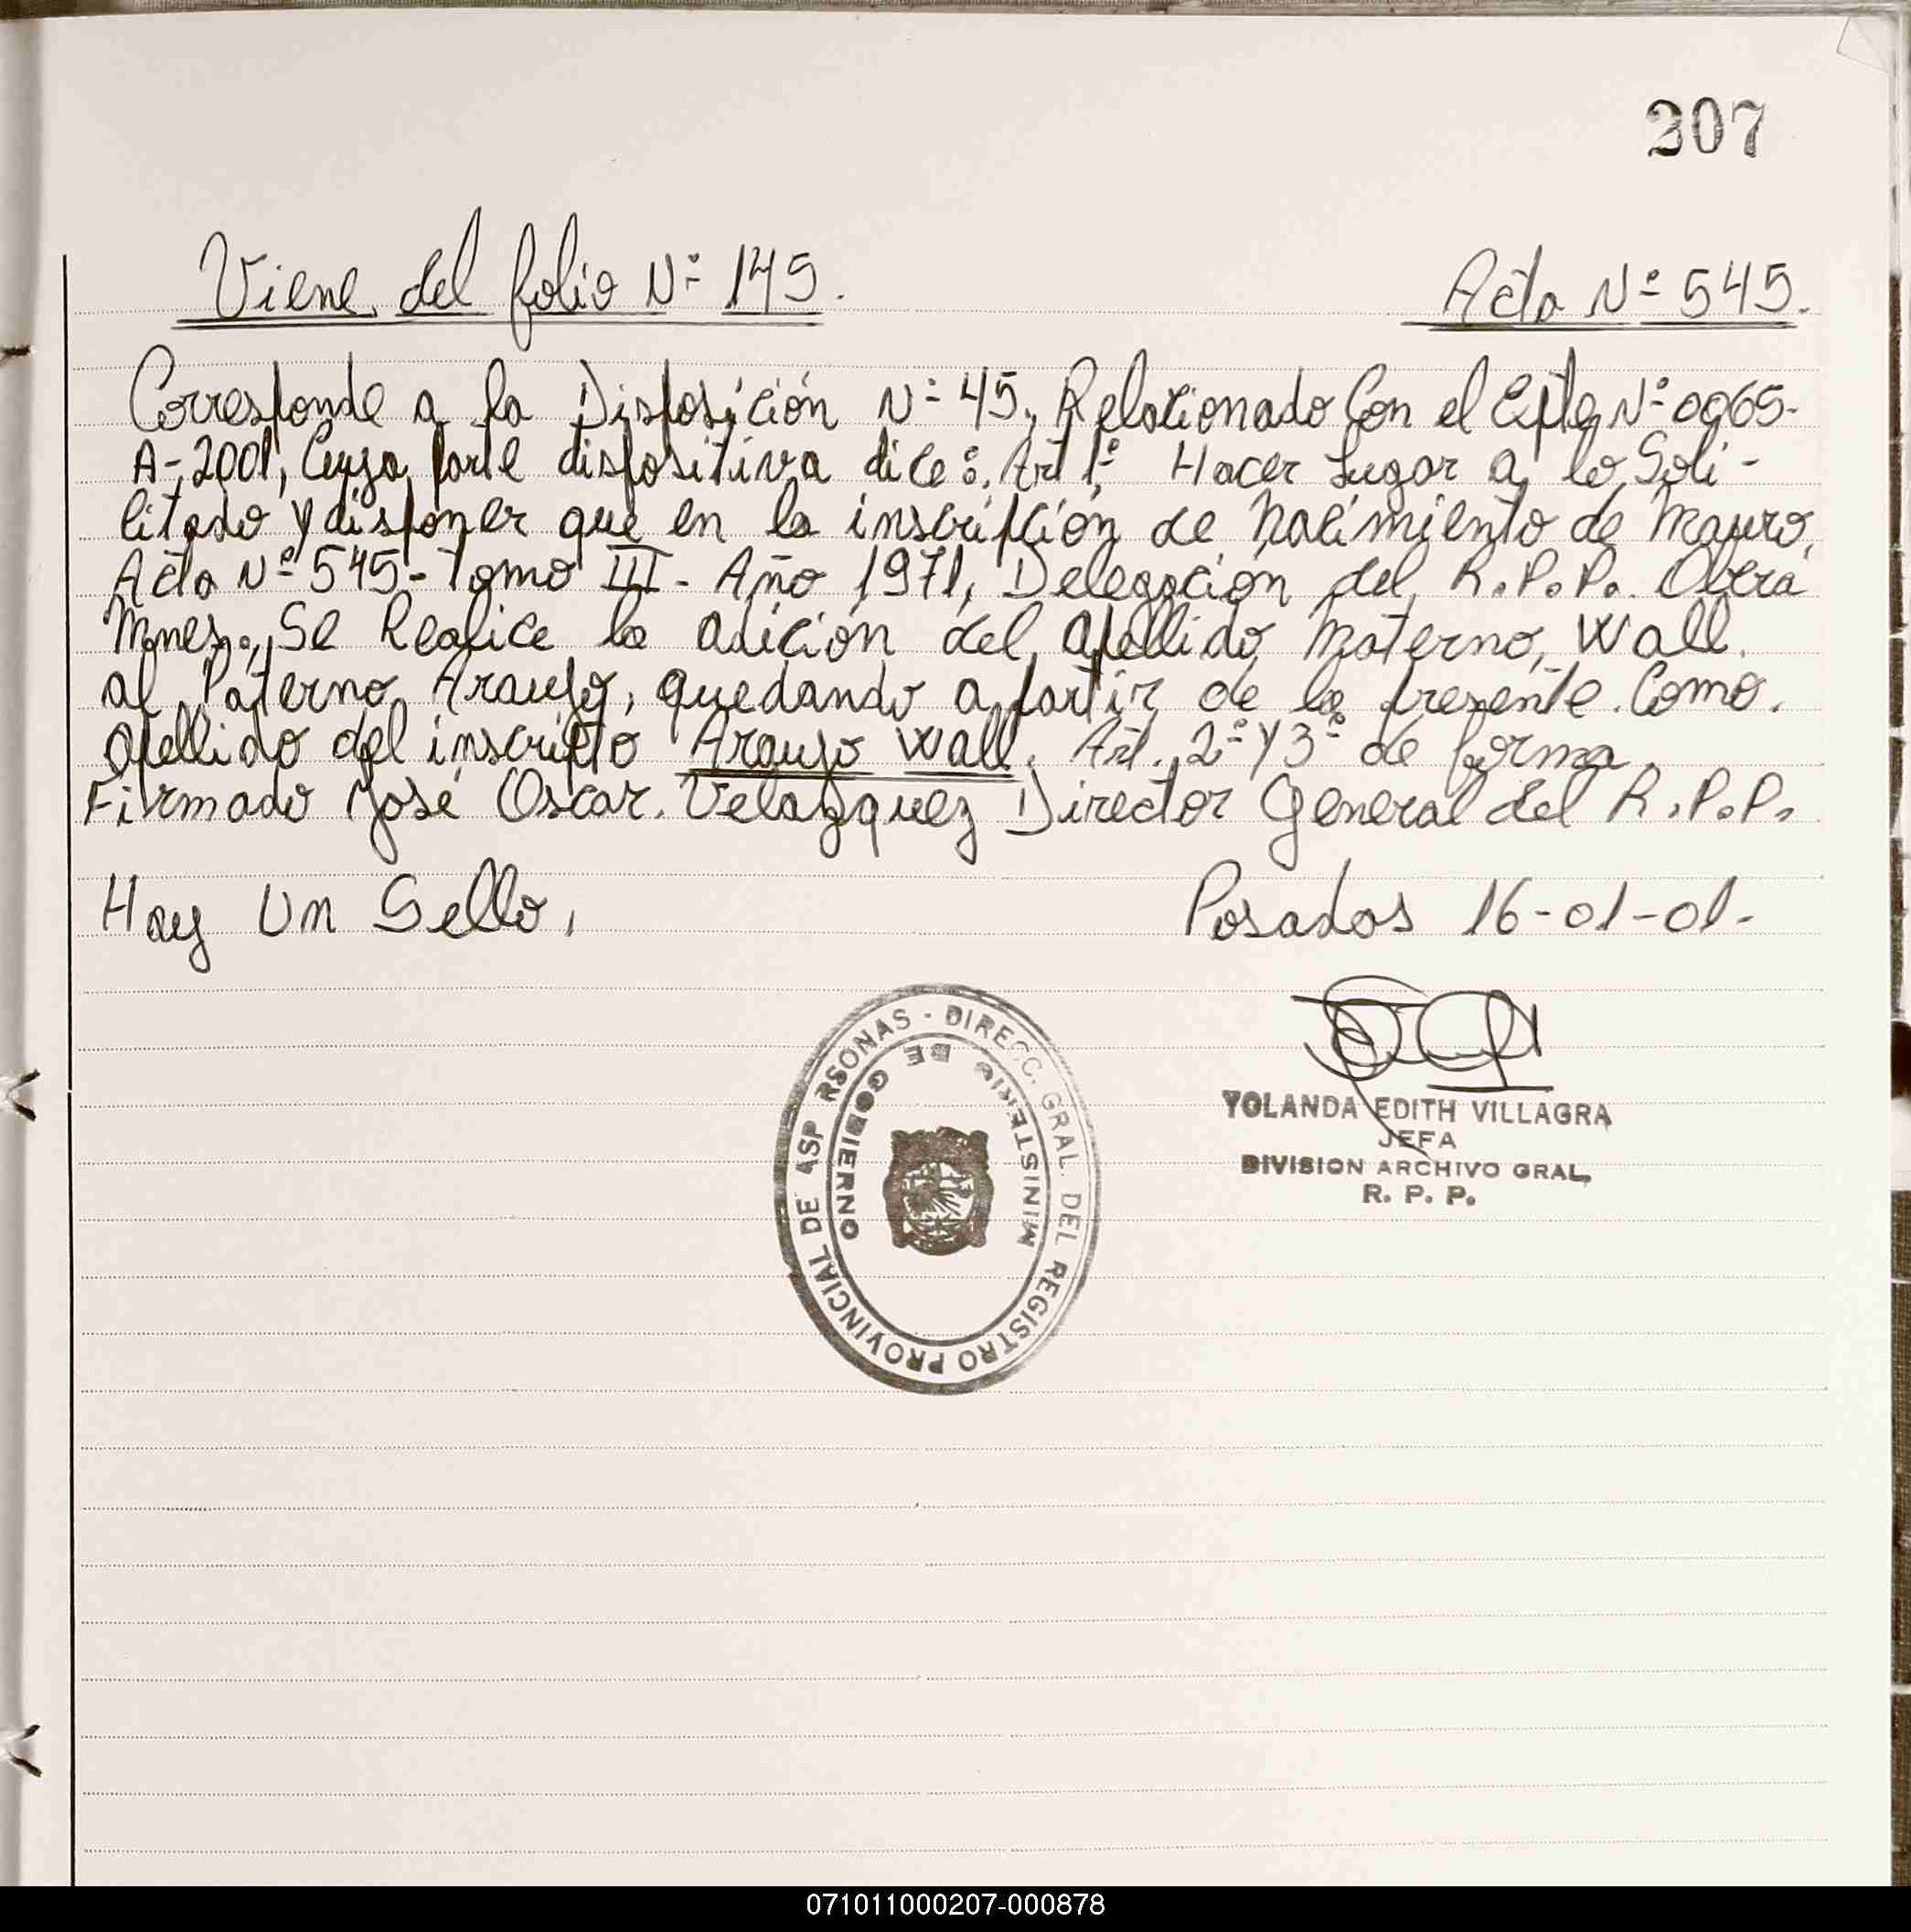 307
Viene del folio Nº 145.
Acta Nº 545.
Corresponde a la Disposición Nº 45, Relacionado Con el Expte Nº 0065-
A-2001, Cuya parte dispositiva dice: Art 1º Hacer Lugar a lo Soli-
citado y disponer que en la inscripción de nacimiento de Mauro,
Acta Nº 545- Tomo III- Año 1971, Delegación del R.P.P. Oberá
Mnes., Se Realice la adición del apellido Materno, Wall.
al Paterno Araujo, quedando a partir de la presente. Como.
apellido del inscripto Araujo Wall. Art. 2º y 3º de forma.
Firmado José Oscar. Velazquez Director General del R.P.P.
Hay Un Sello,
Posadas 16-01-01-
DIRECC. GRAL. DEL REGISTRO PROVINCIAL DE RSONAS -
MINISTERIO DE GOBIERNO
YOLANDA EDITH VILLAGRA
JEFA
DIVISION ARCHIVO GRAL,
R. P. P.
071011000207-000878